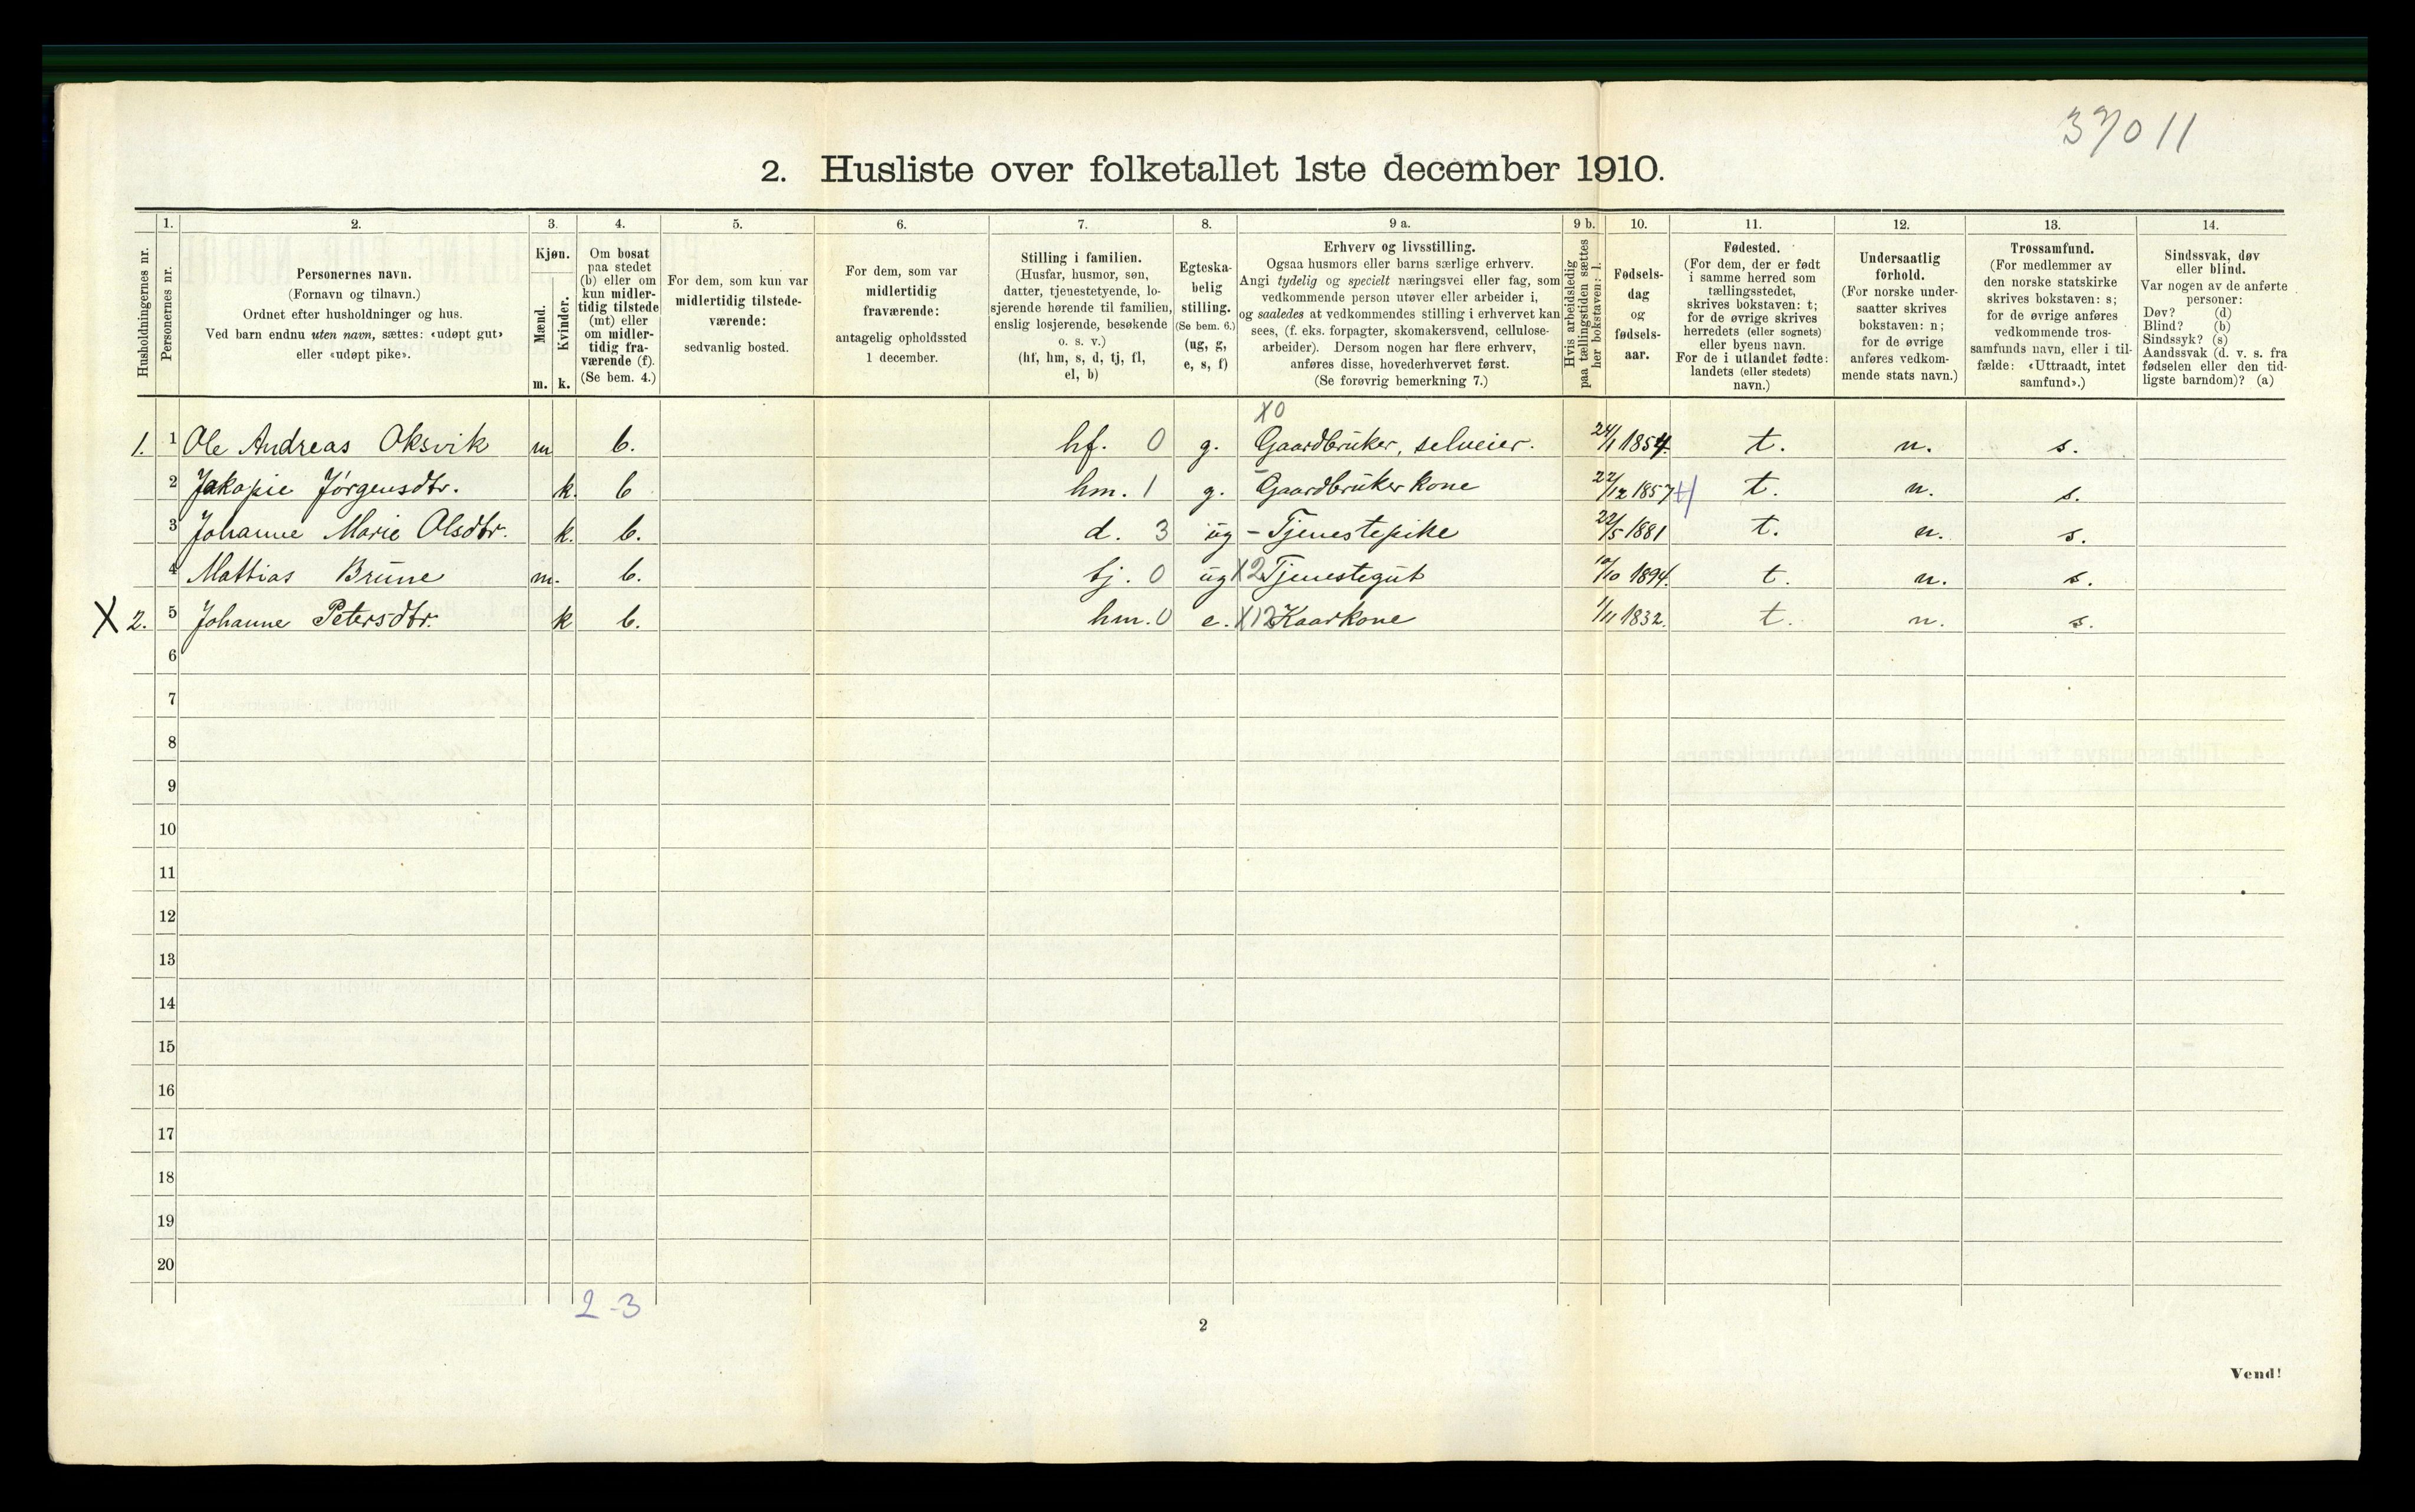 37011
2. Husliste over folketallet 1ste december 1910.
Husholdningernes nr.
1.
Personernes nr.
2.
Personernes navn.
(Fornavn og tilnavn.)
Ordnet efter husholdninger og hus.
Ved barn endnu uten navn, sættes: «udøpt gut»
eller «udøpt pike».
3.
Kjøn.
Mænd.
Kvinder.
m. k.
4.
Om bosat
paa stedet
(b) eller om
kun midler-
tidig tilstede
(mt) eller
om midler-
tidig fra-
værende (f).
(Se bem. 4.)
5.
For dem, som kun var
midlertidig tilstede-
værende:
sedvanlig bosted.
6.
For dem, som var
midlertidig
fraværende:
antagelig opholdssted
1 december.
7.
Stilling i familien.
(Husfar, husmor, søn,
datter, tjenestetyende, lo-
sjerende hørende til familien,
enslig losjerende, besøkende
o. s. v.)
(hf, hm, s, d, tj, fl,
el, b)
8.
Egteska-
belig
stilling.
(Se bem. 6.)
(ug, g,
e, s, f)
9 a.
Erhverv og livsstilling.
Ogsaa husmors eller barns særlige erhverv.
Angi tydelig og specielt næringsvei eller fag, som
vedkommende person utøver eller arbeider i,
og saaledes at vedkommendes stilling i erhvervet kan
sees, (f. eks. forpagter, skomakersvend, cellulose-
arbeider). Dersom nogen har flere erhverv,
anføres disse, hovederhvervet først.
(Se forøvrig bemerkning 7.)
9 b.
Hvis arbeidsledig
paa tællingstiden sættes
her bokstaven: l.
10.
Fødsels-
dag
og
fødsels-
aar.
11.
Fødested.
(For dem, der er født
i samme herred som
tællingsstedet,
skrives bokstaven: t;
for de øvrige skrives
herredets (eller sognets)
eller byens navn.
For de i utlandet fødte:
landets (eller stedets)
navn.)
12.
Undersaatlig
forhold.
(For norske under-
saatter skrives
bokstaven: n;
for de øvrige
anføres vedkom-
mende stats navn.)
13.
Trossamfund.
(For medlemmer av
den norske statskirke
skrives bokstaven: s;
for de øvrige anføres
vedkommende tros-
samfunds navn, eller i til-
fælde: «Uttraadt, intet
samfund».)
14.
Sindssvak, døv
eller blind.
Var nogen av de anførte
personer:
Døv? (d)
Blind? (b)
Sindssyk? (s)
Aandssvak (d. v. s. fra
fødselen eller den tid-
ligste barndom)? (a)
X0
1. 1 Ole Andreas Oksvik m b. hf. 0 g. Gaardbruker, selveier. 24/1 1854. t. n. s.
2 Jakopie Jørgensdtr. k. b hm. 1 g. Gaardbruker kone 22/12 1857 t. n. s.
3 Johanne Marie Olsdtr. k. b. d. 3 ug - Tjenestepike 22/5 1881 t. n. s.
4 Mattias Brune m. b. tj. 0 ug X2 Tjenestegut 10/10 1894. t. n. s.
X 2. 5 Johanne Petersdtr. k b. hm. 0 e. X12 Kaarkone 1/11 1832. t. n. s.
6
7
8
9
10
11
12
13
14
15
16
17
18
19
20
2-3
2
Vend!